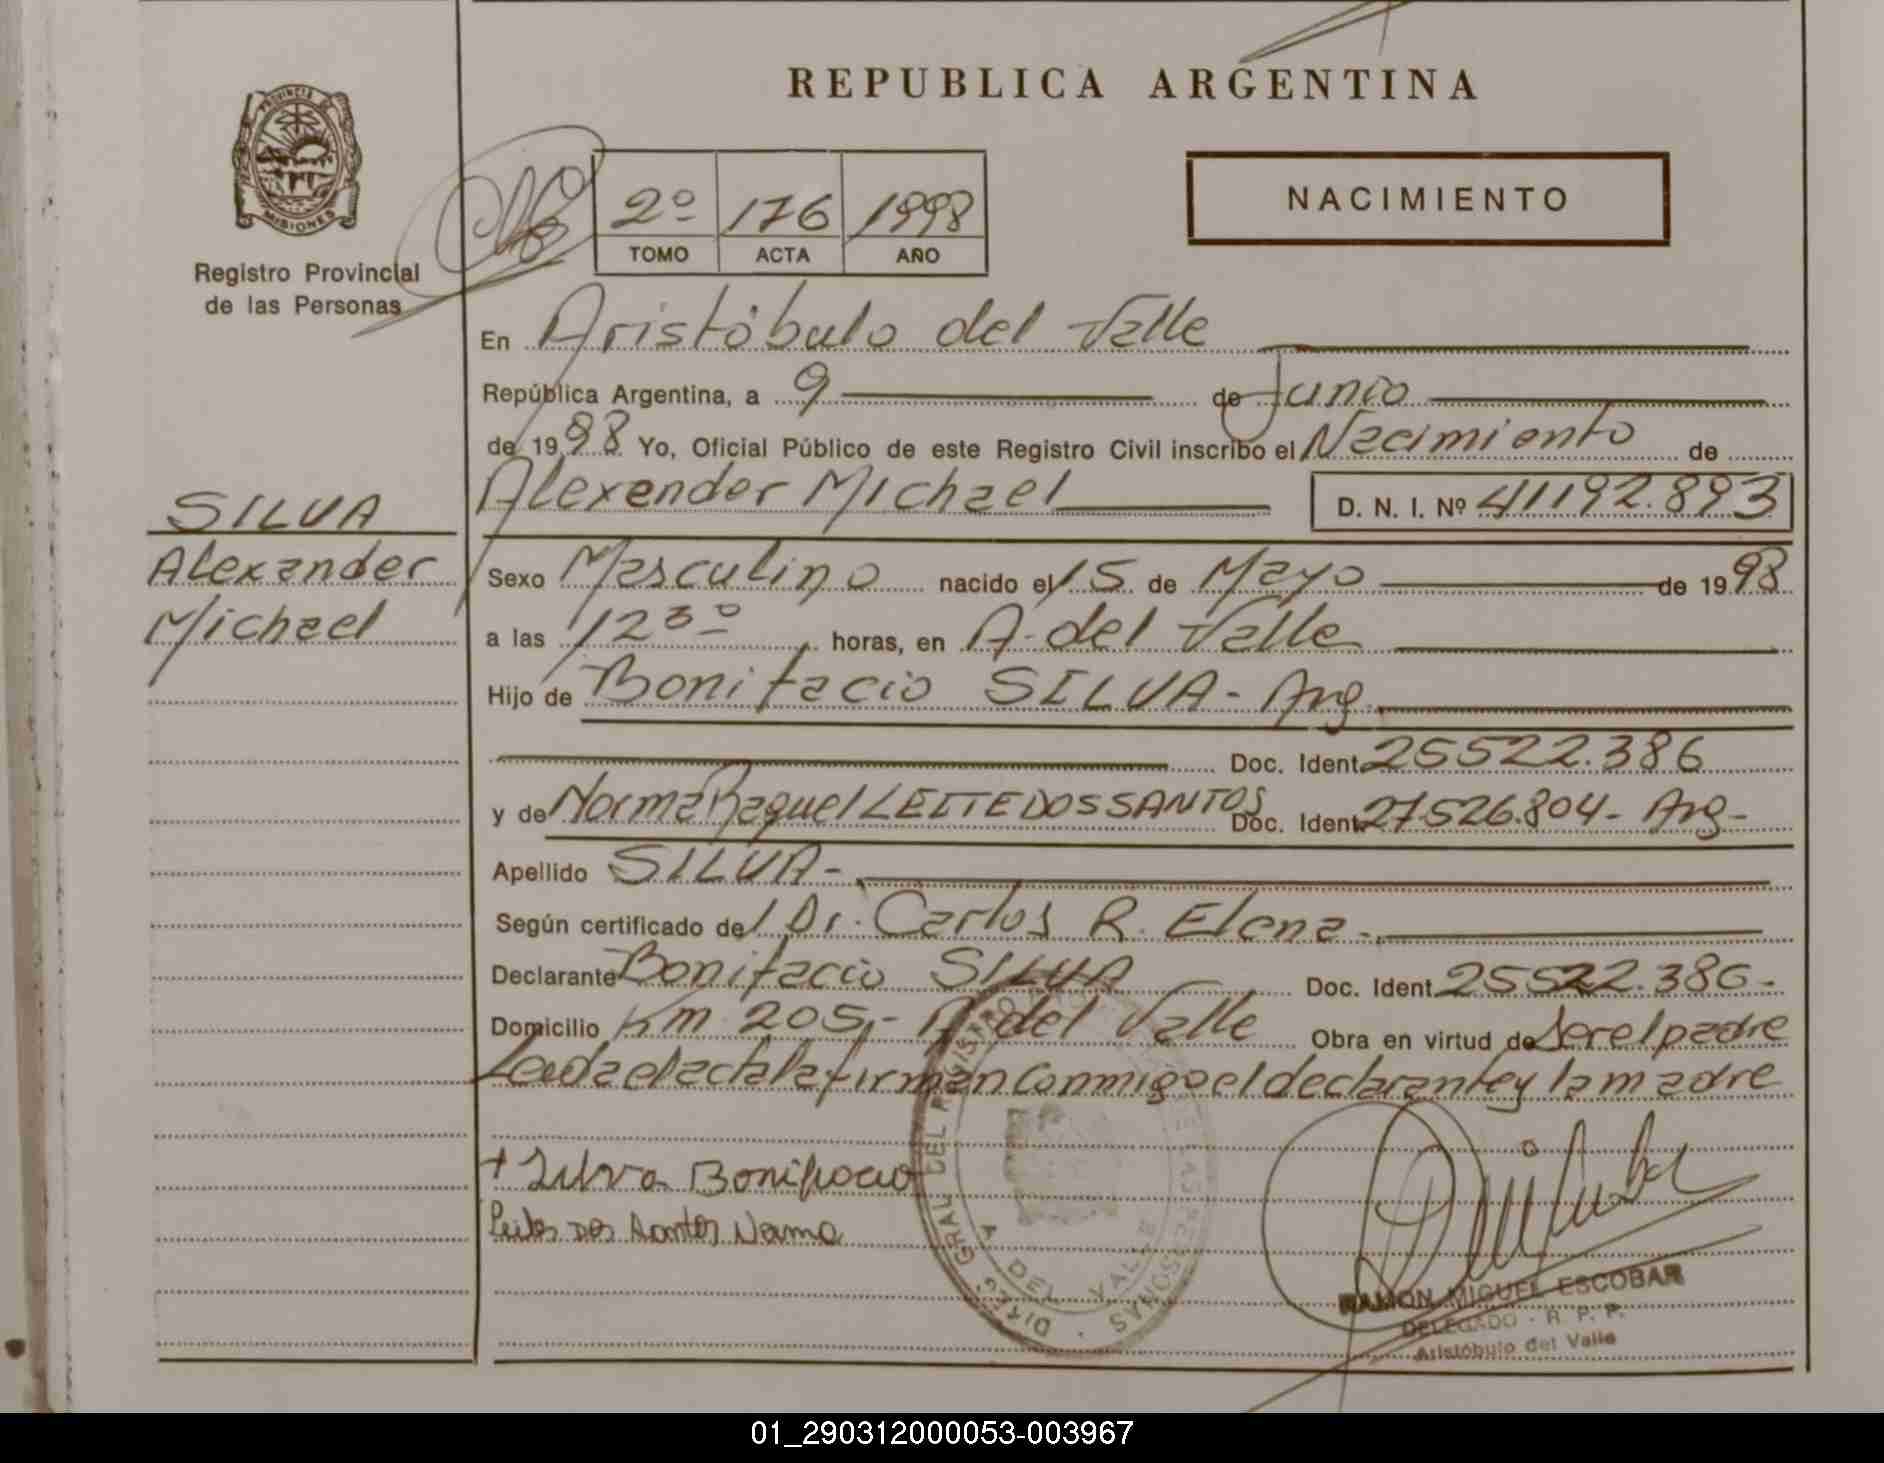 REPUBLICA ARGENTINA
PROVINCIA DE
MISIONES
Registro Provincial
de las Personas
2º 176 1998
TOMO ACTA AÑO
NACIMIENTO
En Aristóbulo del Valle
República Argentina, a 9 de Junio
de 1998 Yo, Oficial Público de este Registro Civil inscribo el Nacimiento de
Alexander Michael D. N. I. Nº 41192.893
SILVA
Alexander
Michael
Sexo Masculino nacido el 15 de Mayo de 1998
a las 12 30 horas, en A. del Valle
Hijo de Bonifacio SILVA - Arg.
Doc. Ident. 25522.386
y de Norma Raquel LEITE DOS SANTOS Doc. Ident. 27526.804 - Arg -
Apellido SILVA -
Según certificado de l Dr. Carlos R. Elena -
Declarante Bonifacio SILVA Doc. Ident. 25522.386 -
Domicilio Km 205 - A del Valle Obra en virtud de Ser el padre
Leida el acta la firman conmigo el declarante y la madre
+ Silva Bonifacio
Leites Dos Santos Norma
DIREC. GRAL DEL REGISTRO PROV. DE LAS PERSONAS
A. DEL VALLE
RAMON MIGUEL ESCOBAR
DELEGADO - R. P. P.
Aristóbulo del Valle
01_290312000053-003967